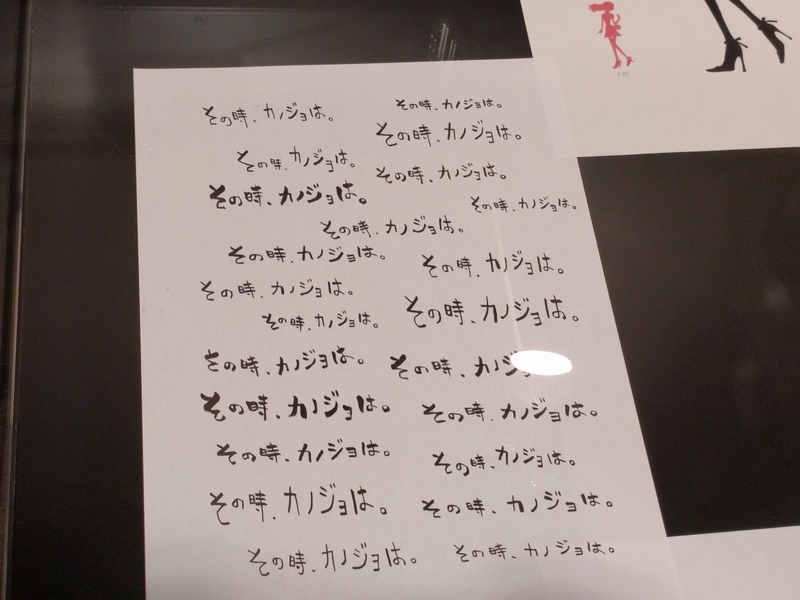 その時、カノジョは。
その時、カノジョは。
その時、カノジョは。
その時、カノジョは。
その時、カノジョは。
その時、カノジョは。
その時、カノジョは。
その時、カノジョは。
その時、カノジョは。
その時、カノジョは。
その時、カノジョは。
その時、カノジョは。
その時、カノジョは。
その時、カノジョは。
その時、カノジ
その時、カノジョは。
その時、カノジョは。
その時、カノジョは。
その時、カノジョは。
その時、カノジョは。
その時、カノジョは。
その時、カノジョは。
その時、カノジョは。